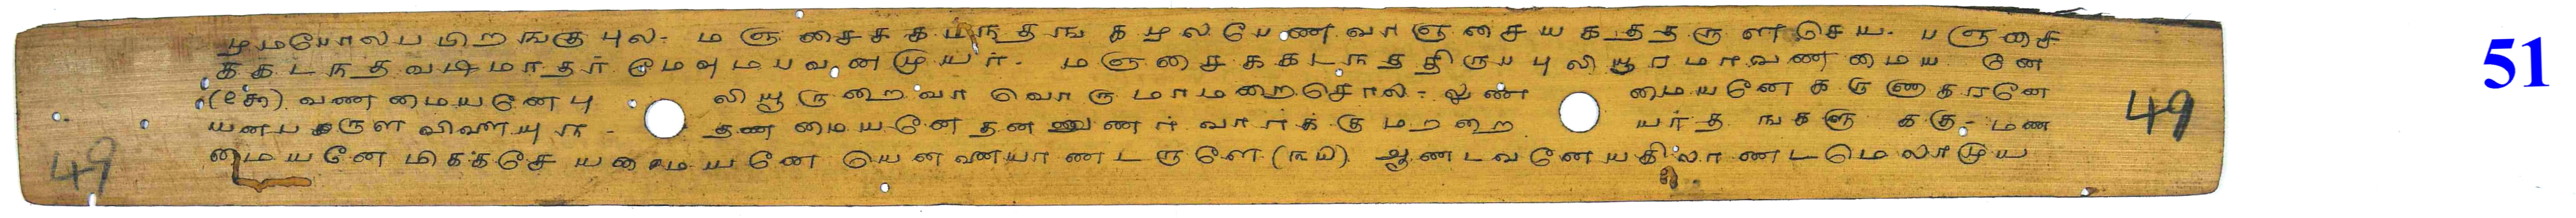 ழமபோலப பிறஙகு புல- மஞசைசகயநதஙகழல பேண வாஞசையகததருள செய- பஞசை
ககடநதவடிமாதர் மேவுமபவனமுயர்- மஞசைககடநததிருபபுலியூரமாவணமைய னே
(௨௯) வணமையனேபு லியூருறைவா வொருமாமறைசொல- லுண மையனே கருணாகரனே
யனபருள விளையுந- தணமையனே தனனுணர்வார்ககு மறறை யர்தஙகளு ககு- மண
மையனே மிககசேயமையனே யெனனையாணடருளே (௩௰) ஆணடவனே யகிலாணடமெலாமுய
49
49
51